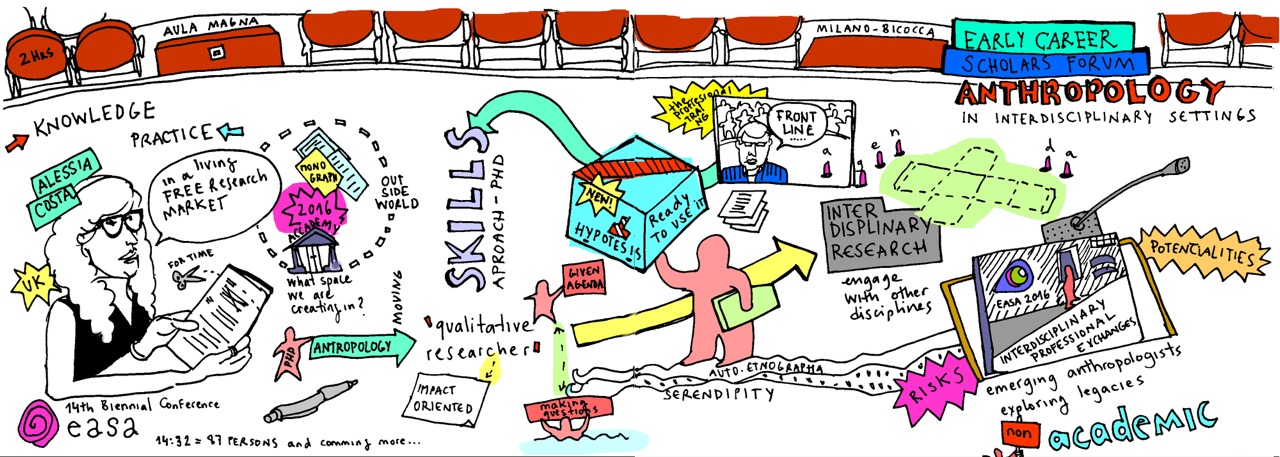 2 HRS
AULA MAGNA
MILANO-BICOCCA
EARLY CAREER
SCHOLARS FORUM
ANTHROPOLOGY
IN INTERDISCIPLINARY SETTINGS
KNOWLEDGE
PRACTICE
ALESSIA
COSTA
UK
in a living
FREE Research
MARKET
FOR TIME
MONO
GRAPH
2016
ACCADEMY
OUT
SIDE
WORLD
what space
we are
creating in?
PHD
ANTROPOLOGY
MOVING
14th Biennial Conference
easa
14:32 = 87 PERSONS and comming more...
SKILLS
APROACH - PHD
"qualitative
researcher"
IMPACT
ORIENTED
GIVEN
AGENDA
making
questions
NEW!
HYPOTESIS
Ready
TO USE IT
the
profesional
TRAI
NG
FRONT
LINE
a g e n d a
INTER
DISPLINARY
RESEARCH
engage
with other
disciplines
AUTO-ETNOGRAPHA
SERENDIPITY
EASA 2016
INTERDISCIPLINARY
PROFESSIONAL
EXCHANGES
POTENCIALITIES
RISKS
emerging anthropologists
exploring legacies
non
academic